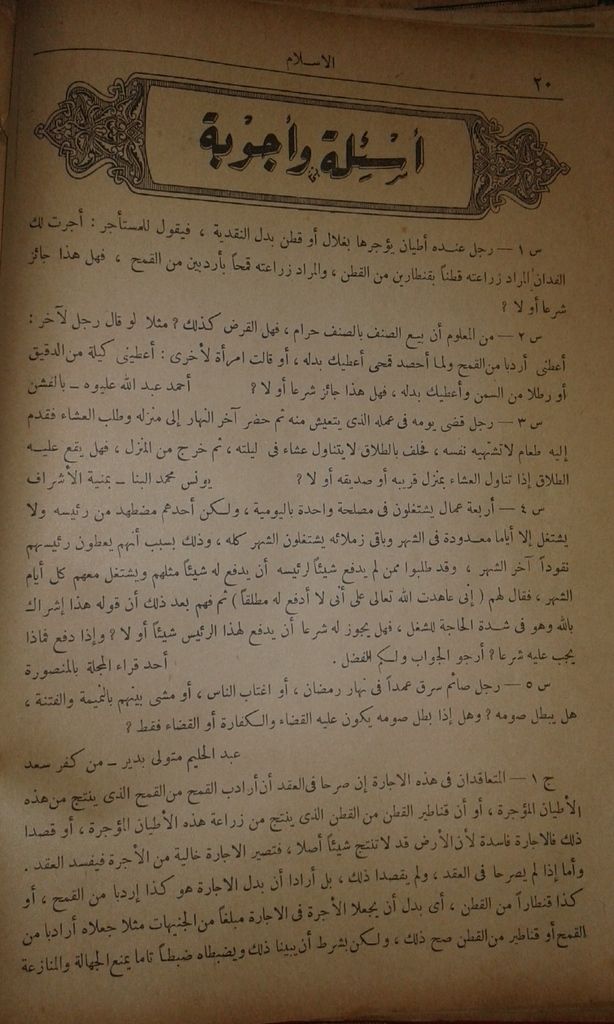 الاسلام
٢٠
أسئلة وأجوبة
س ١ — رجل عنده أطيان يؤجرها بغلال أو قطن بدل النقدية ، فيقول للمستأجر : أجرت لك
الفدان المراد زراعته قطناً بقنطارين من القطن ، والمراد زراعته قمحاً بأردبين من القمح ، فهل هذا جائز
شرعا أو لا ؟
س ٢ — من المعلوم أن بيع الصنف بالصنف حرام ، فهل القرض كذلك ؟ مثلا لو قال رجل لآخر :
أعطنى أردبا من القمح ولما أحصد قمحى أعطيك بدله ، أو قالت امرأة لأخرى : أعطينى كيلة من الدقيق
أو رطلا من السمن وأعطيك بدله ، فهل هذا جائز شرعا أو لا ؟ أحمد عبد الله عليوه ــ بالفشن
س ٣ — رجل قضى يومه فى عمله الذى يتعيش منه ثم حضر آخر النهار إلى منزله وطلب العشاء فقدم
إليه طعام لا تشتهيه نفسه ، فحلف بالطلاق لا يتناول عشاء فى ليلته ، ثم خرج من المنزل ، فهل يقع عليه
الطلاق إذا تناول العشاء بمنزل قريبه أو صديقه أو لا ؟ يونس محمد البنا ــ بمنية الأشراف
س ٤ — أربعة عمال يشتغلون فى مصلحة واحدة باليومية ، ولكن أحدهم مضطهد من رئيسه ولا
يشتغل إلا أياما معدودة فى الشهر وباقى زملائه يشتغلون الشهر كله ، وذلك بسبب أنهم يعطون رئيسهم
نقوداً آخر الشهر ، وقد طلبوا ممن لم يدفع شيئاً لرئيسه أن يدفع له شيئاً مثلهم ويشتغل معهم كل أيام
الشهر ، فقال لهم ( إنى عاهدت الله تعالى على أنى لا أدفع له مطلقاً ) ثم فهم بعد ذلك أن قوله هذا إشراك
بالله وهو فى شدة الحاجة للشغل ، فهل يجوز له شرعا أن يدفع لهذا الرئيس شيئاً أو لا ؟ وإذا دفع فماذا
يجب عليه شرعا ؟ أرجو الجواب ولكم الفضل . أحد قراء المجلة بالمنصورة
س ٥ — رجل صائم سرق عمداً فى نهار رمضان ، أو اغتاب الناس ، أو مشى بينهم بالنميمة والفتنة ،
هل يبطل صومه ؟ وهل إذا بطل صومه يكون عليه القضاء والكفارة أو القضاء فقط ؟
عبد الحليم متولى بدير ــ من كفر سعد
ج ١ — المتعاقدان فى هذه الاجارة إن صرحا فى العقد أن أرادب القمح من القمح الذى ينتج من هذه
الأطيان المؤجرة ، أو أن قناطير القطن من القطن الذى ينتج من زراعة هذه الأطيان المؤجرة ، أو قصدا
ذلك فالاجارة فاسدة لأن الأرض قد لا تنتج شيئاً أصلا ، فتصير الاجارة خالية من الأجرة فيفسد العقد .
وأما إذا لم يصرحا فى العقد ، ولم يقصدا ذلك ، بل أرادا أن بدل الاجارة هو كذا إردبا من القمح ، أو
كذا قنطاراً من القطن ، أى بدل أن يجعلا الأجرة فى الاجارة مبلغاً من الجنيهات مثلا جعلاه أرادبا من
القمح أو قناطير من القطن صح ذلك ، ولكن بشرط أن يبينا ذلك ويضبطاه ضبطاً تاما يمنع الجهالة والمنازعة